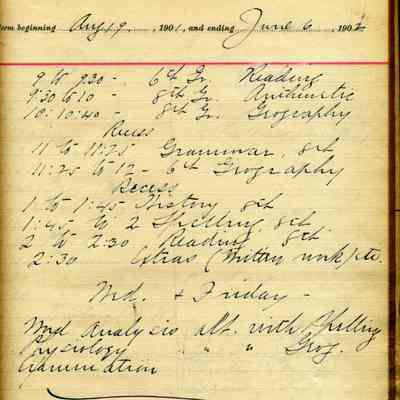 Term beginning Aug 19, 1901, and ending June 6 1902
9 to 9:30 - 6th Gr. Reading
9:30 to 10 - 8th Gr. Arithmetic
10: 10:40 - 8th Gr. Geography
Recess
11 to 11:25 Grammar, 8th
11:25 to 12 - 6th Geography
Recess
1 to 1:45 History 8th
1:45 to 2 Spelling, 8th.
2 to 2:30 Reading 8th
2:30 Extras (Written work) etc.
Wed. + Friday -
Word Analysis alt. with Spelling
Physiology " " Geog.
Examination